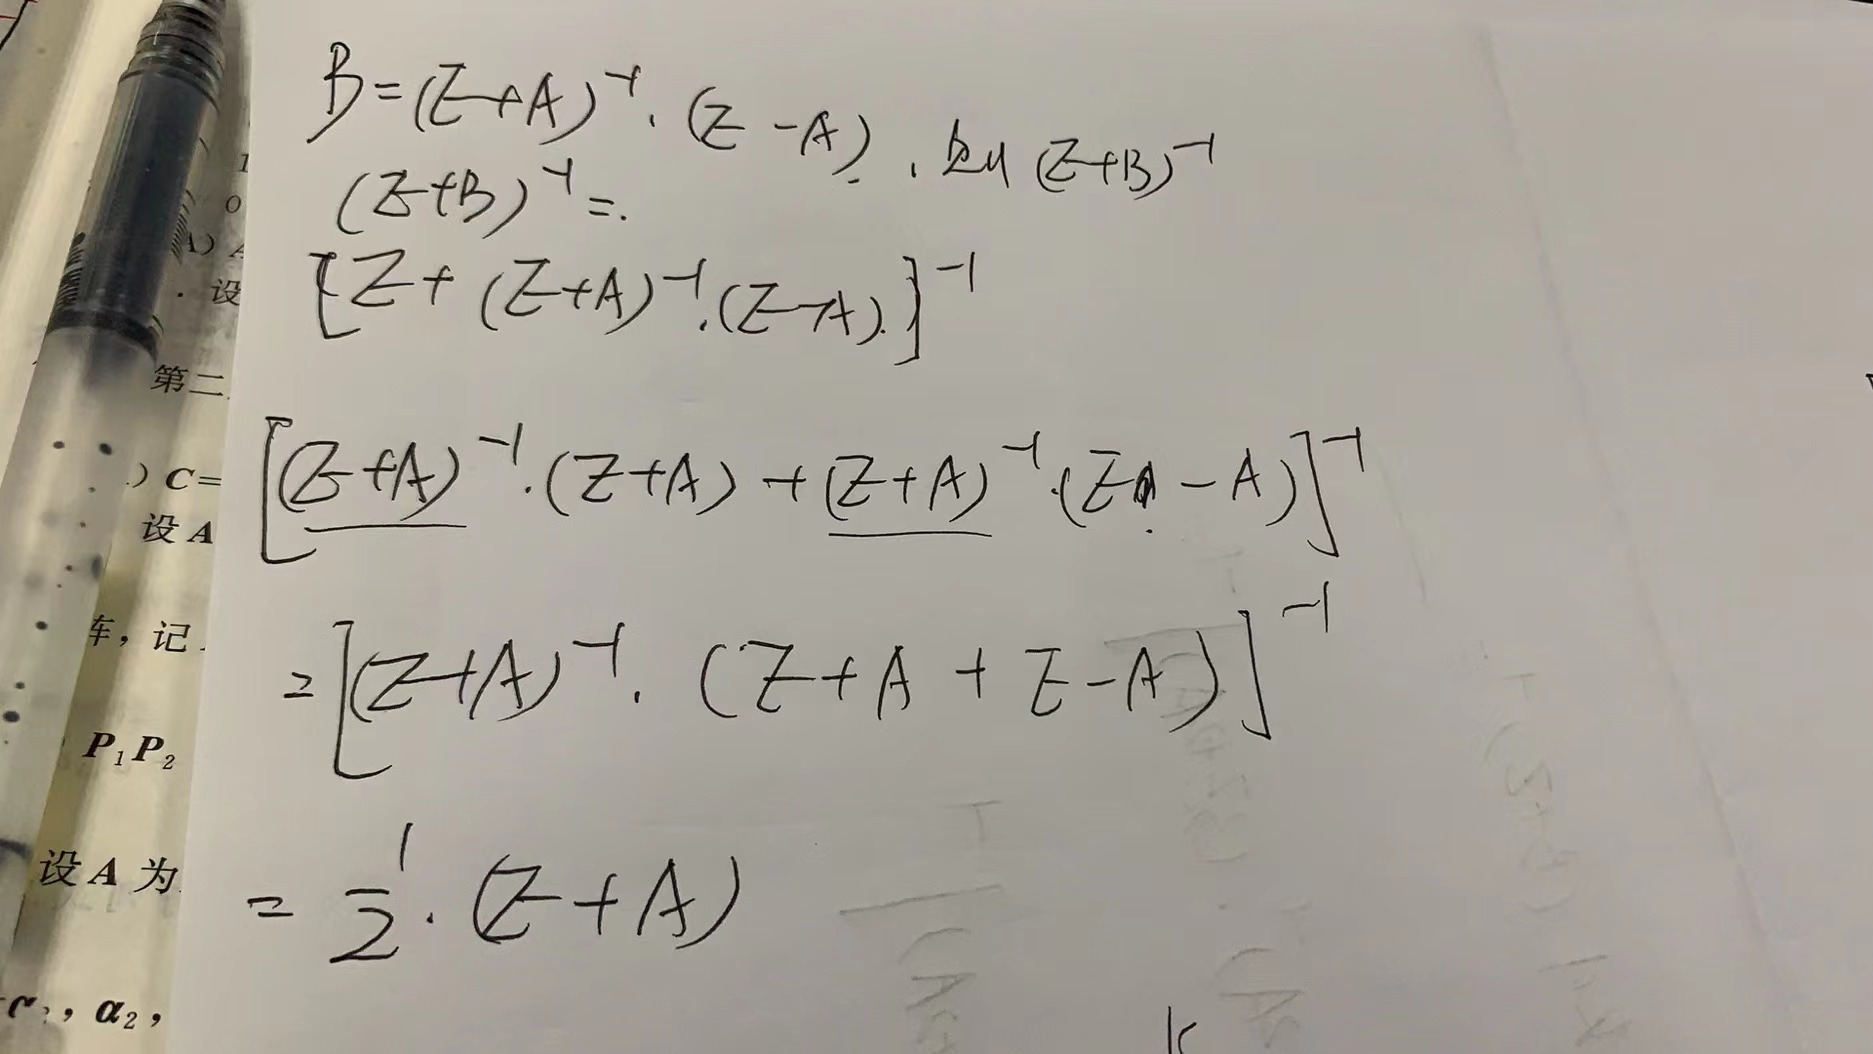 B=(E+A)⁻¹·(E-A), 则(E+B)⁻¹
(E+B)⁻¹=.
[E+(E+A)⁻¹·(E-A)]⁻¹
[(E+A)⁻¹·(E+A)+(E+A)⁻¹·(E-A)]⁻¹
=[(E+A)⁻¹·(E+A+E-A)]⁻¹
=1/2·(E+A)
1
0
设
第二
) C=
设 A
车，记
P₁P₂
设 A 为
α₂，